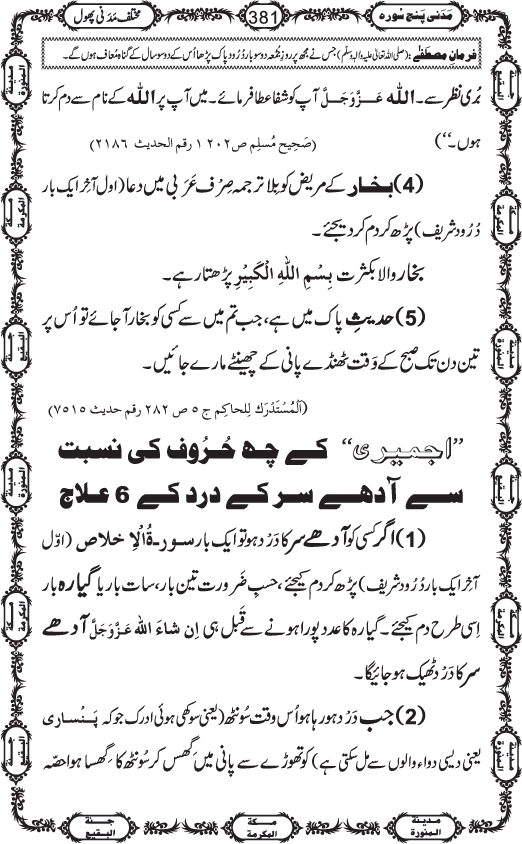 مَدَنی پنج سُورہ
381
مختلف مَدَنی پھول
فرمانِ مصطَفٰے : (صلی اللہ تعالیٰ علیہ والہٖ وسلّم) جس نے مجھ پر روزِ جُمُعہ دو سو بار دُرُودِ پاک پڑھا اُس کے دو سو سال کے گناہ مُعاف ہوں گے۔
بُری نظر سے۔ اللہ عَزَّوَجَلَّ آپ کو شفا عطا فرمائے۔ میں آپ پر اللہ کے نام سے دم کرتا
ہوں۔‘‘) (صَحِیح مُسلِم ص ۱۲۰۲ رقم الحدیث ۲۱۸۶)
(4) بخار کے مریض کو بِلا ترجمہ صِرْف عَرَبی میں دعا (اول آخِر ایک بار
دُرُود شریف) پڑھ کر دم کر دیجئے۔
بخار والا بکثرت بِسْمِ اللّٰهِ الْكَبِيْرِ پڑھتا رہے۔
(5) حدیثِ پاک میں ہے، جب تم میں سے کسی کو بخار آ جائے تو اُس پر
تین دن تک صبح کے وَقت ٹھنڈے پانی کے چھینٹے مارے جائیں۔
(اَلْمُسْتَدْرَك لِلحاكِم ج ۵ ص ۲۸۲ رقم حدیث ۷۵۱۵)
’’اجمیری‘‘ کے چھ حُرُوف کی نسبت
سے آدھے سر کے درد کے 6 علاج
(1) اگر کسی کو آدھے سر کا دَرْد ہو تو ایک بار سورۃُ الْاِخلاص (اوّل
آخِر ایک بار دُرُود شریف) پڑھ کر دم کیجئے، حسبِ ضَرورت تین بار، سات بار یا گیارہ بار
اِسی طرح دم کیجئے۔ گیارہ کا عدد پورا ہونے سے قَبل ہی اِن شاءَ اللہ عَزَّوَجَلَّ آدھے
سر کا دَرْد ٹھیک ہو جائیگا۔
(2) جب دَرْد ہو رہا ہو اُس وقت سُونٹھ (یعنی سوکھی ہوئی ادرک جو کہ پَنْساری
یعنی دیسی دواء والوں سے مل سکتی ہے) کو تھوڑے سے پانی میں گھِس کر سُونٹھ کا گھِسا ہوا حصّہ
مدینۃ المنورۃ
مکۃ المکرمۃ
جنۃ البقیع
مدینۃ المنورۃ
مکۃ المکرمۃ
جنۃ البقیع
جنۃ البقیع
مکۃ المکرمۃ
مدینۃ المنورۃ
جنۃ البقیع
مکۃ المکرمۃ
مدینۃ المنورۃ
مدینۃ المنورۃ
مکۃ المکرمۃ
جنۃ البقیع